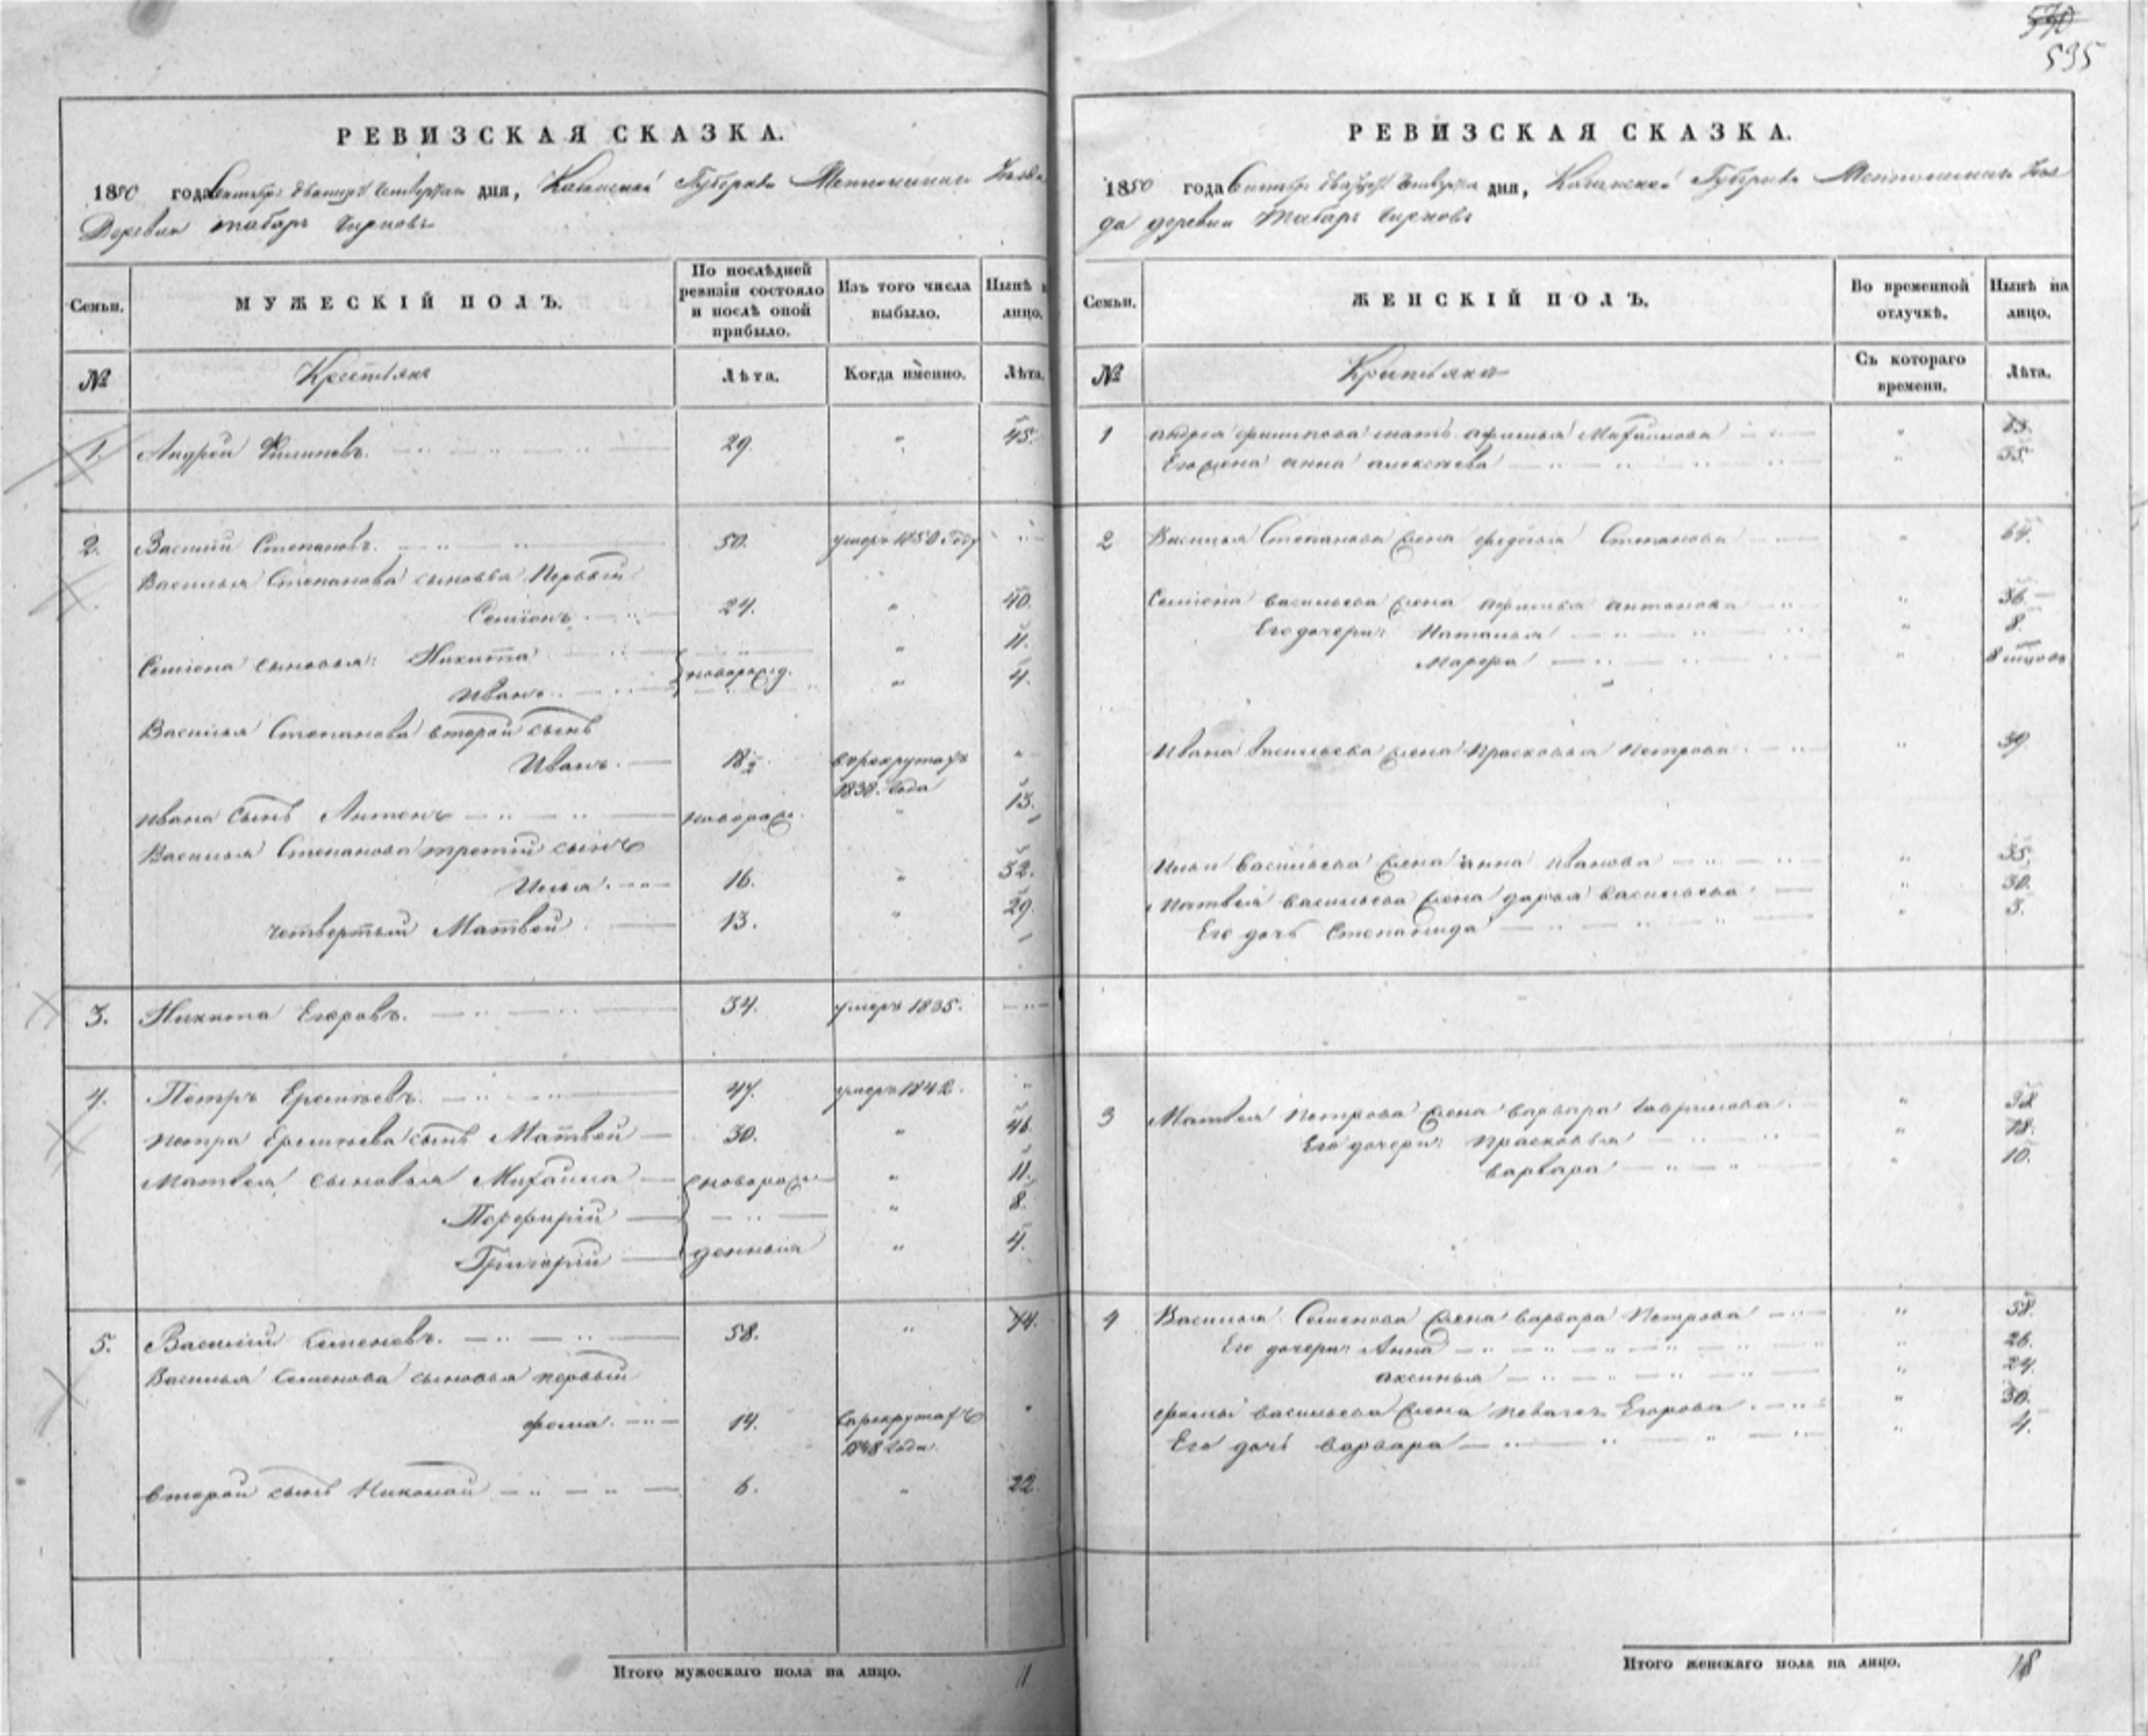 570
535
РЕВИЗСКАЯ СКАЗКА.
1850 года Сентября двадцать четвертаго дня, Казанской Губерніи Мензелинска Уезда
Деревни табаръ Чирковъ
Семьи.
МУЖЕСКІЙ ПОЛЪ.
По послѣдней ревизіи состояло и послѣ оной прибыло.
Изъ того числа выбыло.
Нынѣ на лицо.
№
Крестьянъ
Лѣта.
Когда именно.
Лѣта.
1. Андрей Филиповъ. 29. " 45.
2. Василій Степановъ. 50. умеръ 1850 Году
Василья Степанова сыновья Первый
Семіонъ 24. " 40.
Семіона сыновья: Никита " 11.
новорожд.
Иванъ " 4.
Василья Степанова второй сынъ
Иванъ. 18½. в рекрутахъ "
1838. Года
Ивана сынъ Антонъ новорож. " 13.
Василья Степанова третій сынъ
Илья. 16. " 32.
четвертый Матвей 13. " 29.
3. Никита Егоровъ. 34. умеръ 1835.
4. Петръ Еремѣевъ. 47. умеръ 1842. "
Петра Еремѣева сынъ Матвей 30. " 46.
Матвея сыновья Михаила новорож " 11.
Порфирій " 8.
Григорій денныя " 4.
5. Василій Семеновъ. 58. " 74.
Василья Семенова сыновья первый
Фома. 14. в рекрутахъ "
1848 Года.
второй сынъ Николай 6. " 22.
Итого мужескаго пола на лицо. 11
РЕВИЗСКАЯ СКАЗКА.
1850 года Сентября двадцать четвертаго дня, Казанской Губерніи Мензелинска Уез
да деревни Табаръ Чирковъ
Семьи.
ЖЕНСКІЙ ПОЛЪ.
Во временной отлучкѣ.
Нынѣ на лицо.
№
Крестьянъ
Съ котораго времени.
Лѣта.
1 Андрея Филипова мать Афимья Михайлова " 73.
Его жена Анна Алексѣева " 35.
2 Василья Степанова жена Федосья Степанова " 64.
Семіона Васильева жена Афимья Антонова " 36.
Его дочери: Наталья " 8.
Марфа " 8 мцовъ
Ивана Васильева жена Прасковья Петрова " 39.
Ильи Васильева жена Анна Иванова " 35.
Матвея Васильева жена Дарья Васильева " 30.
Его дочь Степанида " 5.
3 Матвея Петрова жена Варвара Гаврилова " 38
Его дочери: Прасковья " 18.
Варвара " 10.
4 Василья Семенова жена Варвара Петрова " 58.
Его дочери: Анна " 26.
Аксинья " 24.
Фомы Васильева жена Егорова " 30.
Его дочь Варвара " 4.
Итого женскаго пола на лицо. 18